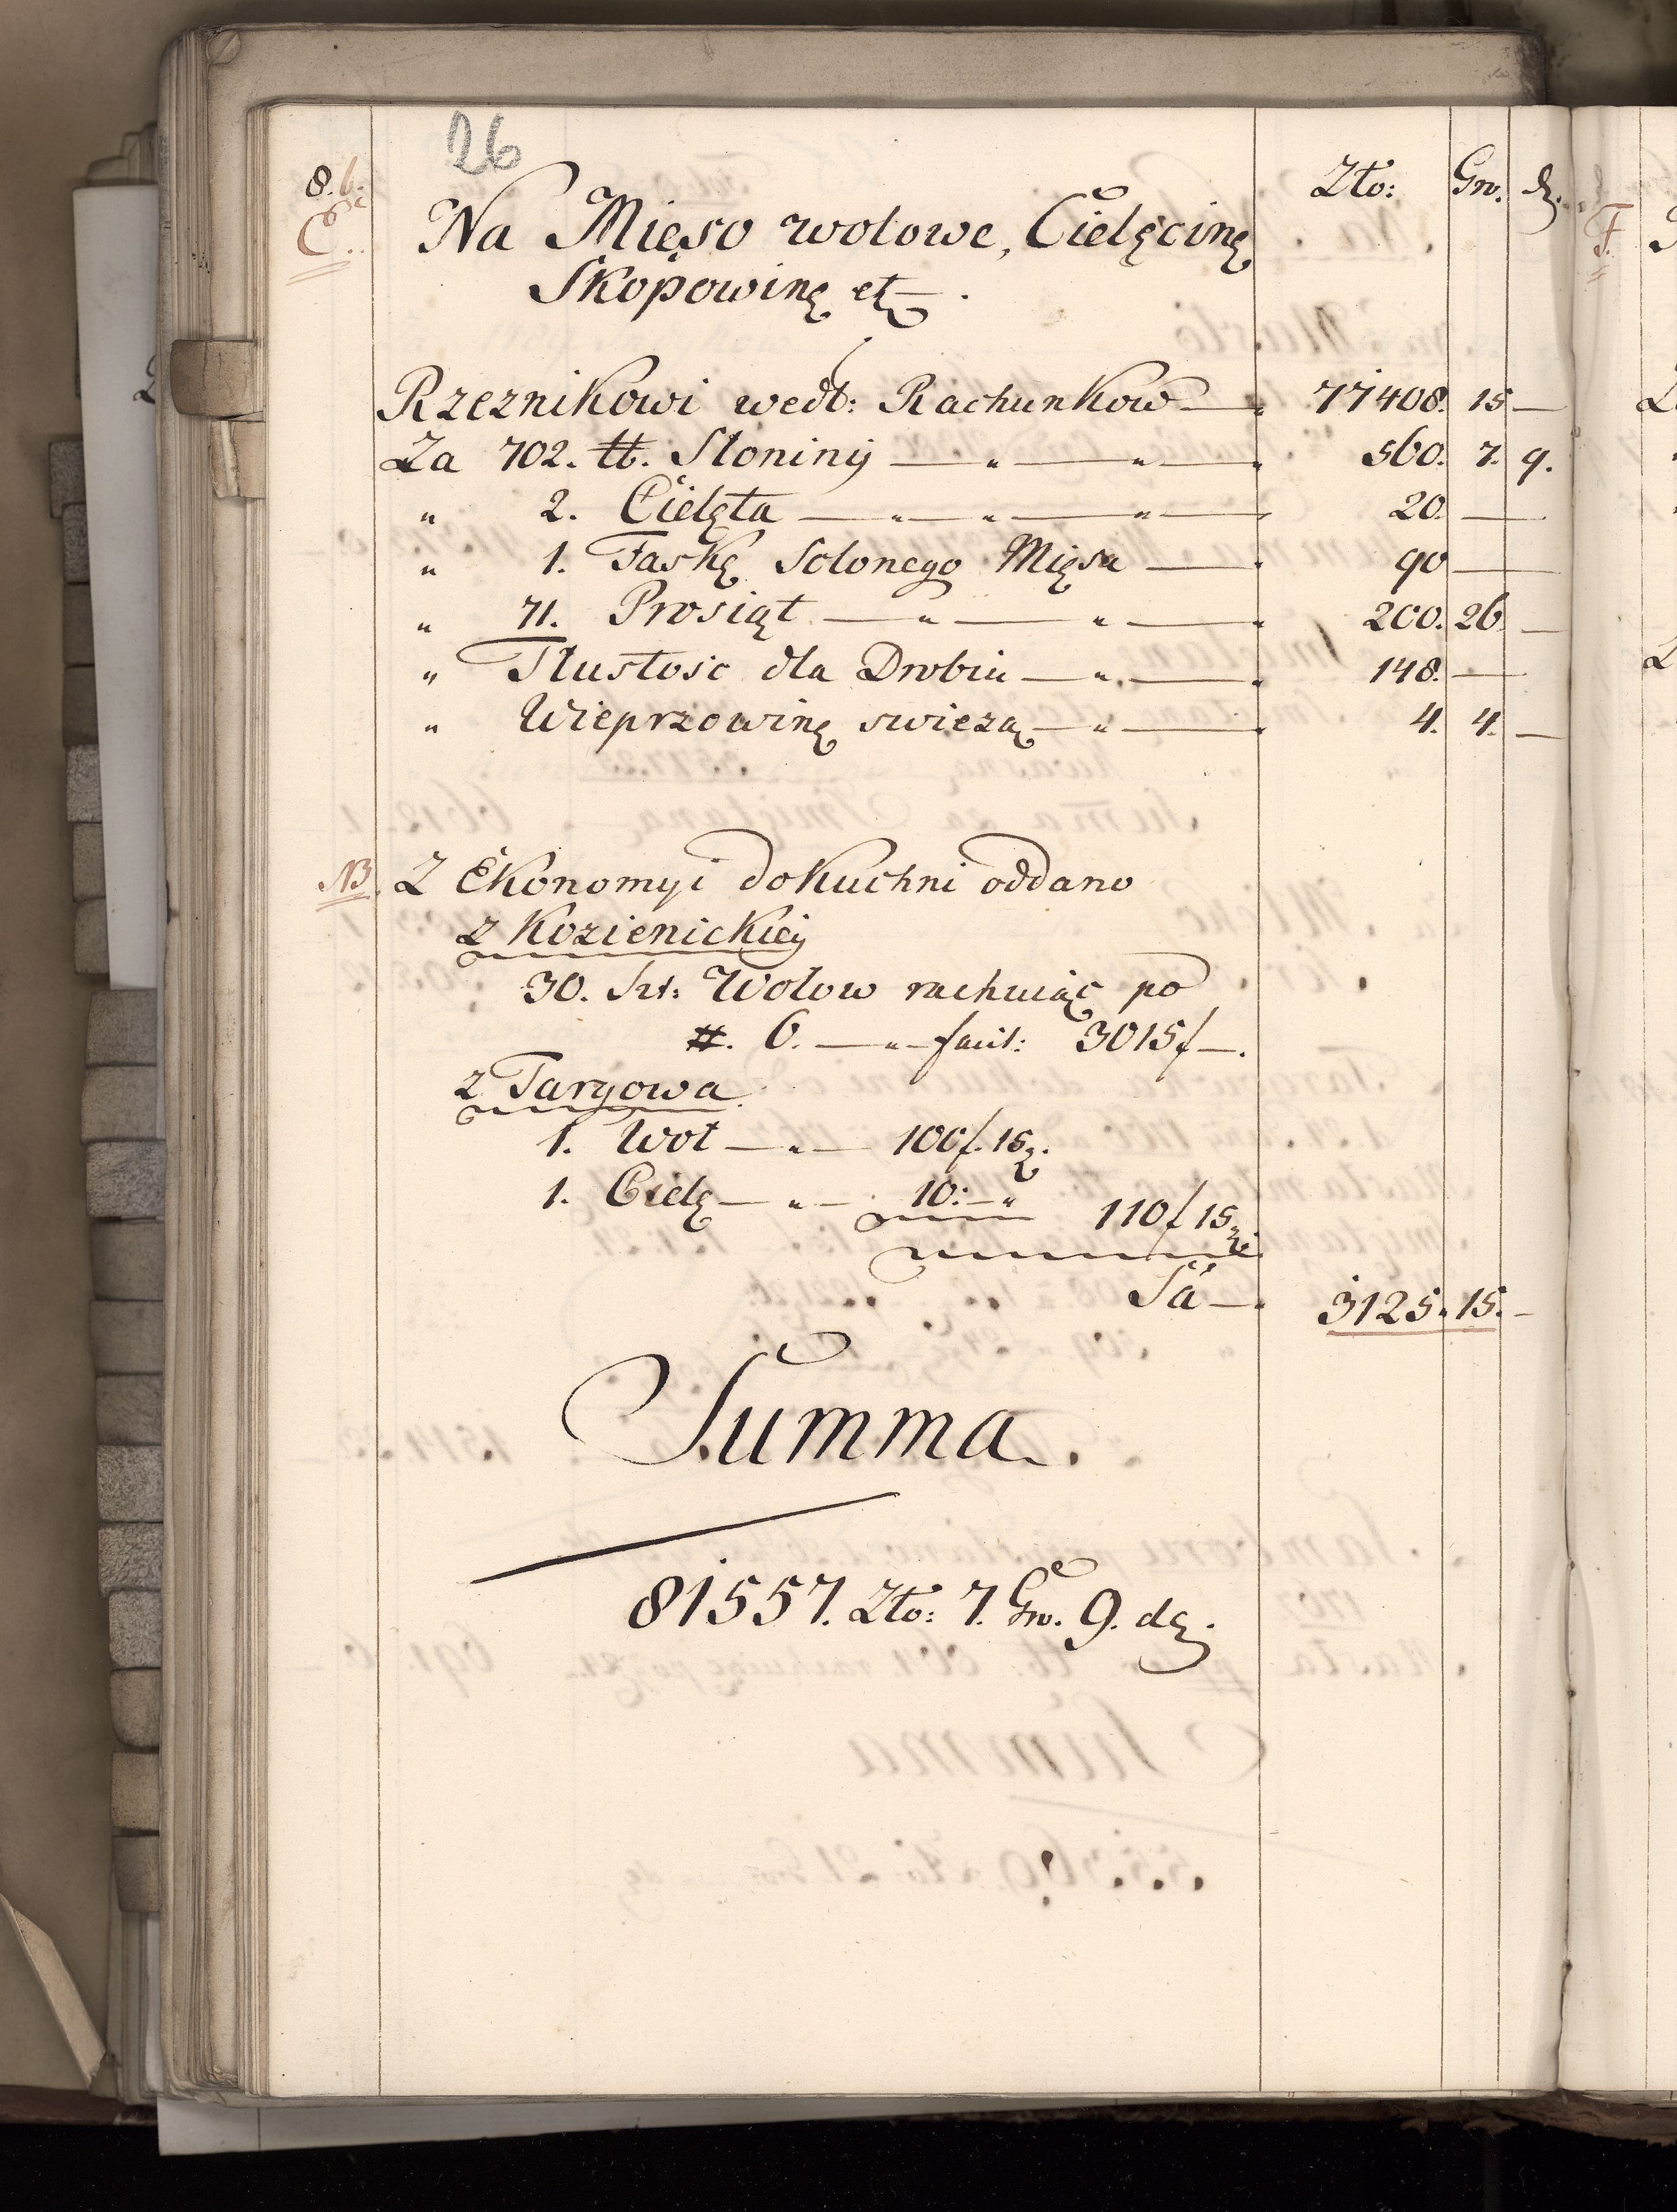 26
8. b.
Zło: Gro. d.
E.. Na Mięso wołowe, Cielęcinę
Skopowinę etc.
Rzeznikowi wedł: Rachunkow 77408. 15 —
Za 702. ℔. Słoniny — " — " — 560. 7. 9.
" 2. Cielęta — " — " — " — 20. —
" 1. Faskę Solonego Mięsa — 90 —
" 71. Prosiąt — " — " — 200. 26. —
" Tłustosc dla Drobiu — " — 148. —
" Wieprzowinę swiezą — " — 4. 4. —
NB. Z Ekonomyi do Kuchni oddano
z Kozienickiey
30. Szt: Wołow rachuiąc po
#. 6. — " — facit: 3015 f —.
z Targowa
1. Woł — " — 100 f. 15 g.
1. Cielę — " — 10: — "
110 f 15 g.
Sa —. 3125. 15. —
Summa.
81557. Zło: 7. Gro. 9. d.